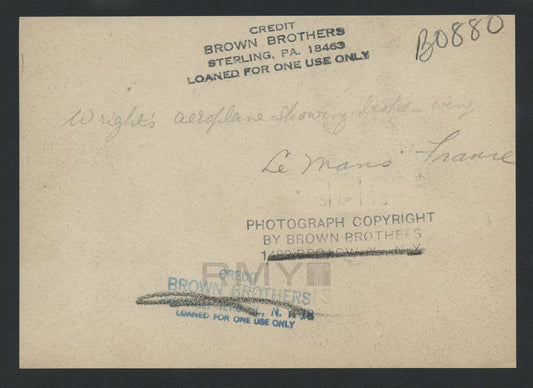 CREDIT
BROWN BROTHERS
STERLING, PA. 18463
LOANED FOR ONE USE ONLY
B0880
Wright's aeroplane showing broken wing
Le Mans France
PHOTOGRAPH COPYRIGHT
BY BROWN BROTHERS
N.Y.
RMY
CREDIT
BROWN BROTHERS
N. Y.
LOANED FOR ONE USE ONLY